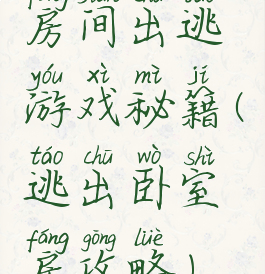 房间出逃
yóu xì mì jí
游戏秘籍(
táo chū wò shì
逃出卧室
fáng gōng lüè
房攻略)